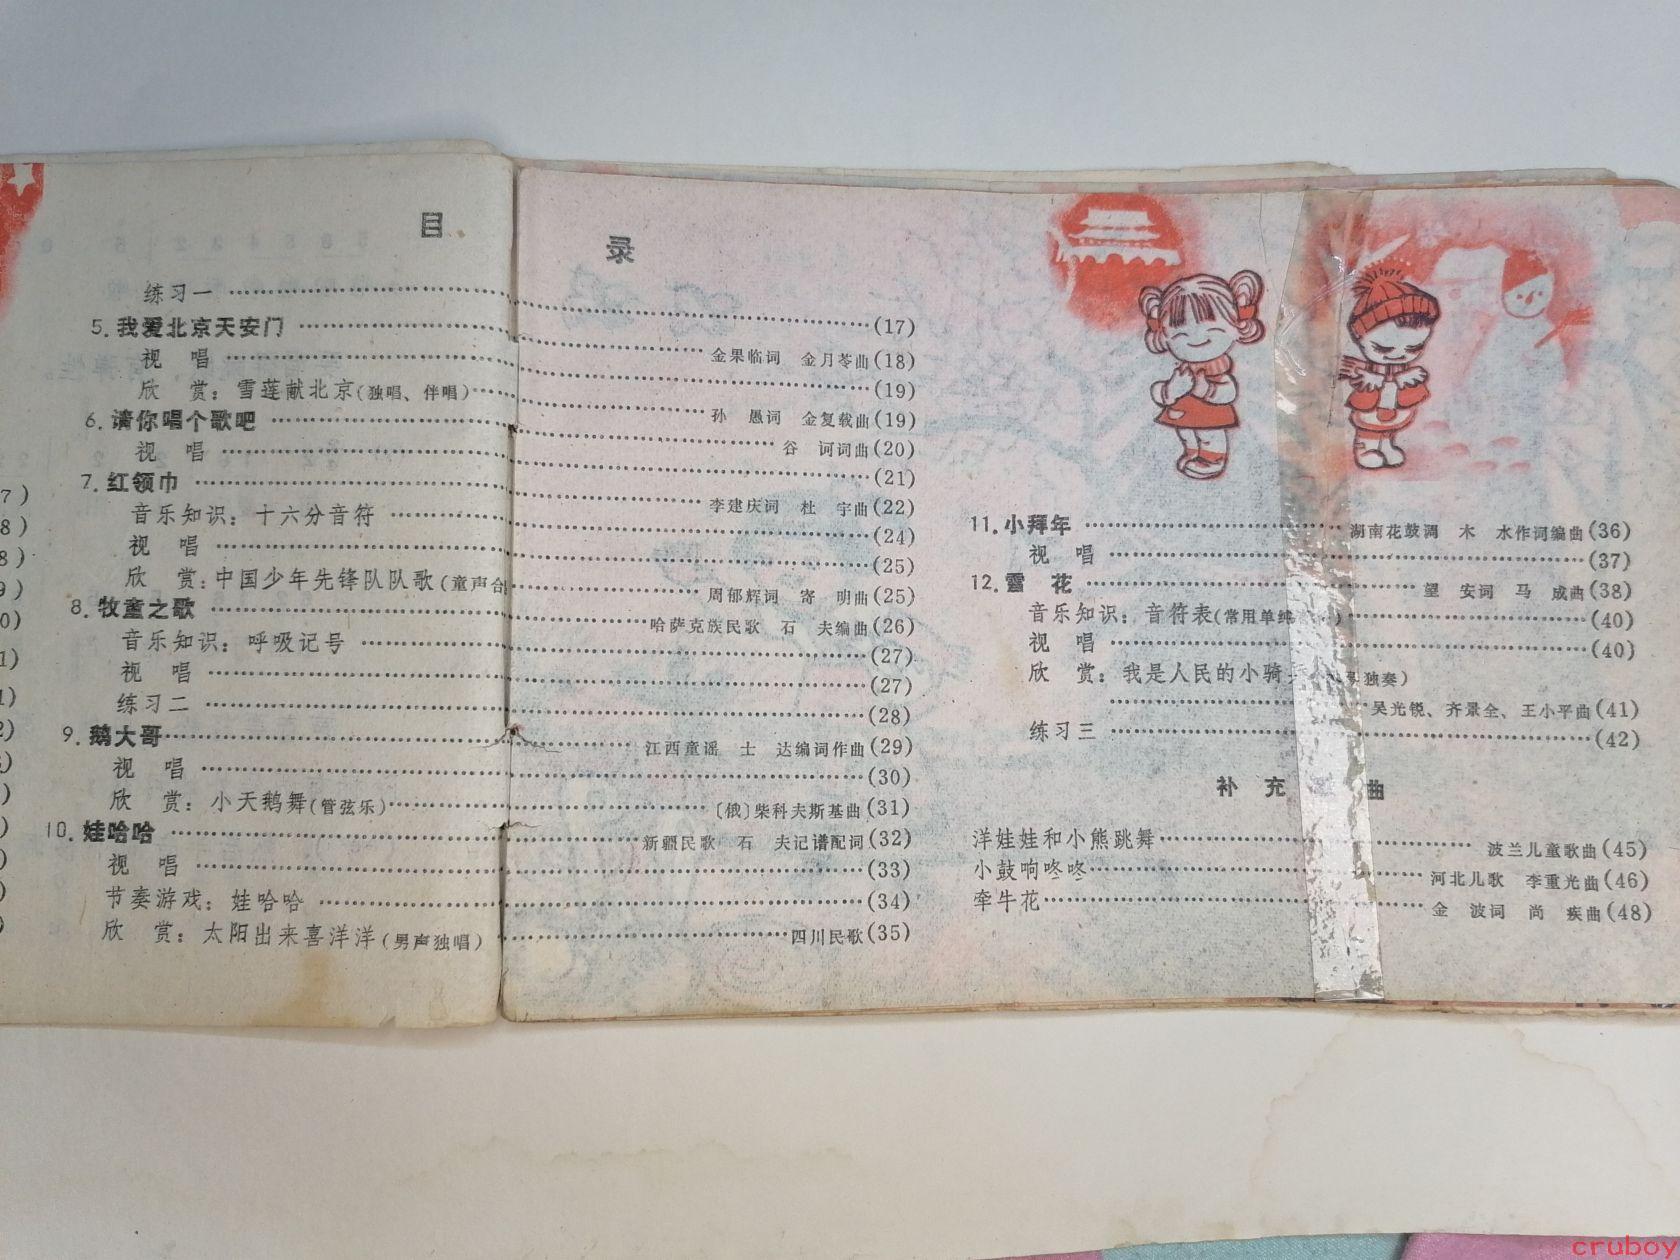 目 录
练习一 ……(17)
5.我爱北京天安门 ……金果临词 金月苓曲(18)
视 唱 ……(19)
欣 赏：雪莲献北京(独唱、伴唱)……孙 愚词 金复载曲(19)
6.请你唱个歌吧 ……谷 诃词曲(20)
视 唱 ……(21)
7.红领巾 ……李建庆词 杜 宇曲(22)
音乐知识：十六分音符 ……(24)
视 唱 ……(25)
欣 赏：中国少年先锋队队歌(童声合……周郁辉词 寄 明曲(25)
8.牧童之歌 ……哈萨克族民歌 石 夫编曲(26)
音乐知识：呼吸记号 ……(27)
视 唱 ……(27)
练习二 ……(28)
9.鹅大哥……江西童谣 士 达编词作曲(29)
视 唱 ……(30)
欣 赏：小天鹅舞(管弦乐)……〔俄〕柴科夫斯基曲(31)
10.娃哈哈 ……新疆民歌 石 夫记谱配词(32)
视 唱 ……(33)
节奏游戏：娃哈哈 ……(34)
欣 赏：太阳出来喜洋洋(男声独唱) ……四川民歌(35)
11.小拜年 ……湖南花鼓调 木 水作词编曲(36)
视 唱 ……(37)
12.雪 花 ……望 安词 马 成曲(38)
音乐知识：音符表(常用单纯 ) ……(40)
视 唱 ……(40)
欣 赏：我是人民的小骑 独奏)
……吴光锐、齐景全、王小平曲(41)
练习三 ……(42)
补 充 曲
洋娃娃和小熊跳舞……波兰儿童歌曲(45)
小鼓响咚咚……河北儿歌 李重光曲(46)
牵牛花……金 波词 尚 疾曲(48)
cruboy